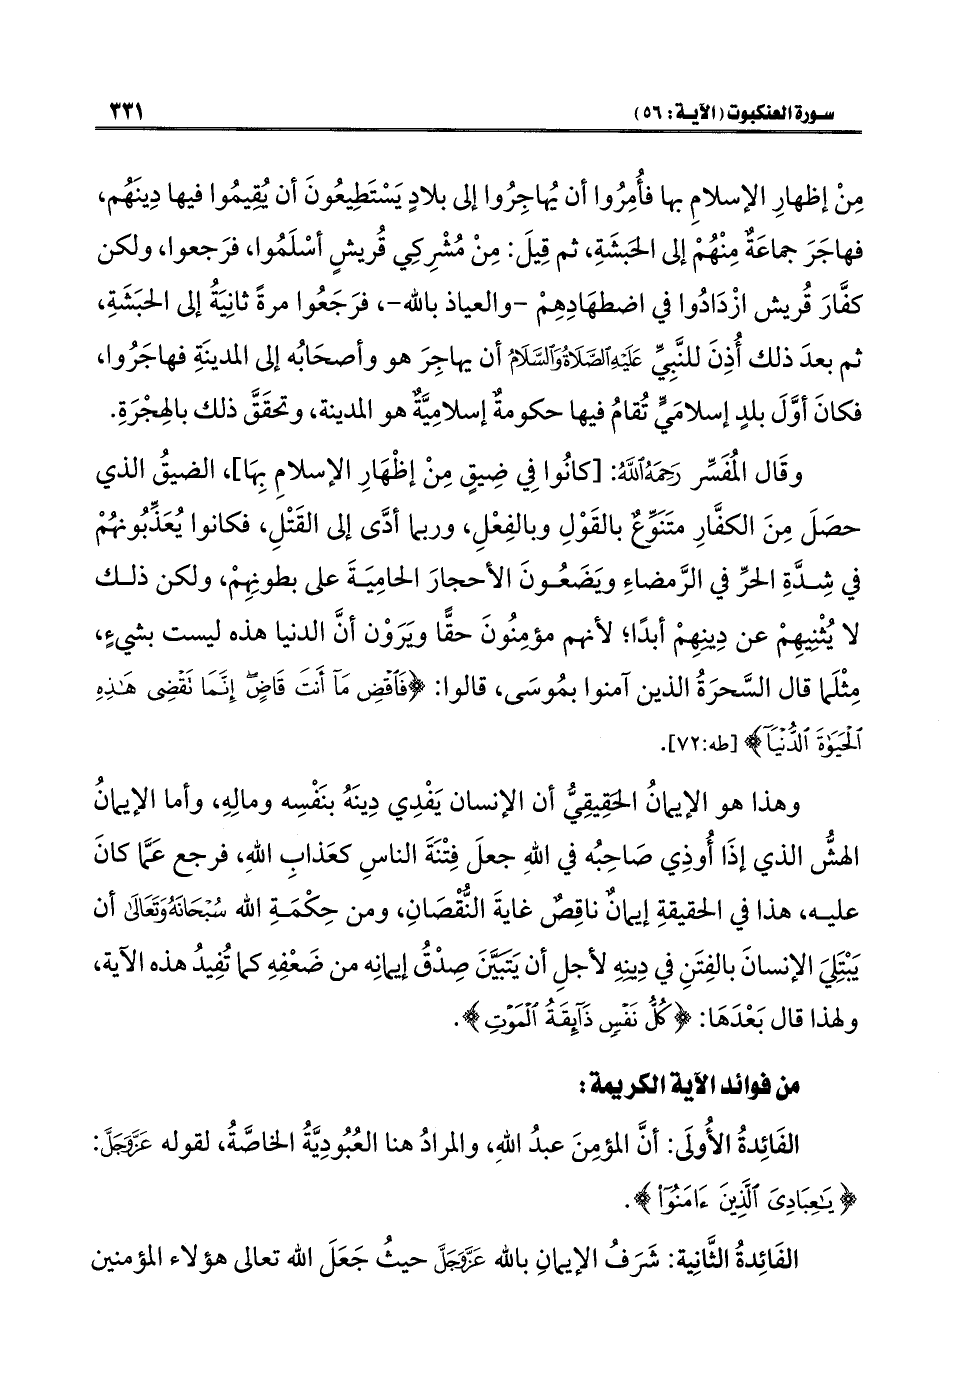 سورة العنكبوت (الآية: ٥٦) ٣٣١
مِنْ إظهارِ الإسلامِ بها فأُمِرُوا أن يُهاجِرُوا إلى بلادٍ يَسْتَطِيعُونَ أن يُقِيمُوا فيها دِينَهُم،
فهاجَرَ جماعَةٌ مِنْهُمْ إلى الحَبَشَةِ، ثم قِيلَ: مِنْ مُشْرِكِي قُريشٍ أسْلَمُوا، فرَجعوا، ولكن
كفَّارَ قُريش ازْدَادُوا في اضطهَادِهِمْ -والعياذ بالله-، فرَجَعُوا مرةً ثانِيَةُ إلى الحَبَشَةِ،
ثم بعدَ ذلك أُذِنَ للنَّبِيِّ عَلَيْهِ الصَّلَاةُ وَالسَّلَامُ أن يهاجِرَ هو وأصحَابُه إلى المدينَةِ فهاجَرُوا،
فكانَ أوَّلَ بلدٍ إسلامَيٍّ تُقامُ فيها حكومةٌ إسلاميَّةٌ هو المدينة، وتحقَقَّ ذلك بالهِجْرَةِ.
وقَال المُفَسِّر رَحِمَهُ اللَّهُ: [كانُوا فِي ضِيقٍ مِنْ إظْهَارِ الإسلامِ بِهَا]، الضيقُ الذي
حصَلَ مِنَ الكفَّارِ متَنَوِّعٌ بالقَوْلِ وبالفِعْلِ، وربما أدَّى إلى القَتْلِ، فكانوا يُعَذِّبُونهُمْ
في شِدَّةِ الحرِّ في الرَّمضاءِ ويَضَعُونَ الأحجارَ الحامِيَةَ على بطونِهِمْ، ولكن ذلك
لا يُثْنِيهِمْ عن دِينِهِمْ أبدًا؛ لأنهم مؤمِنُونَ حقًّا ويَرَوْن أنَّ الدنيا هذه ليست بشيءٍ،
مِثْلَما قال السَّحرَةُ الذين آمنوا بمُوسَى، قالوا: ﴿فَٱقْضِ مَآ أَنتَ قَاضٍ ۖ إِنَّمَا نَقْضِى هَٰذِهِ
ٱلْحَيَوٰةَ ٱلدُّنْيَآ﴾ [طه:٧٢].
وهذا هو الإيمانُ الحَقِيقِيُّ أن الإنسان يَفْدِي دِينَهُ بنَفْسِه ومالِهِ، وأما الإيمانُ
الهشُّ الذي إذَا أُوذِي صَاحِبُه في اللهِ جعلَ فِتْنَةَ الناسِ كعَذابِ اللهِ، فرجع عَمَّا كانَ
عليه، هذا في الحقيقةِ إيمانٌ ناقِصٌ غايةَ النُّقْصَانِ، ومن حِكْمَةِ الله سُبْحَانَهُ وَتَعَالَىٰ أن
يَبْتَلِيَ الإنسانَ بالفِتَنِ في دِينِهِ لأجلِ أن يَتَبيَّنَ صِدْقُ إيمانِه من ضَعْفِهِ كما تُفِيدُ هذه الآية،
ولهذا قال بَعْدَهَا: ﴿كُلُّ نَفْسٍ ذَآئِقَةُ ٱلْمَوْتِ﴾.
من فوائد الآية الكريمة:
الفَائِدةُ الأُولَى: أنَّ المؤمِنَ عبدُ اللهِ، والمرادُ هنا العُبُودِيَّةُ الخاصَّةُ، لقوله عَزَّوَجَلَّ:
﴿يَٰعِبَادِىَ ٱلَّذِينَ ءَامَنُوٓا۟﴾.
الفَائِدةُ الثَّانِية: شَرَفُ الإيمانِ بالله عَزَّوَجَلَّ حيثُ جَعَلَ الله تعالى هؤلاء المؤمنين